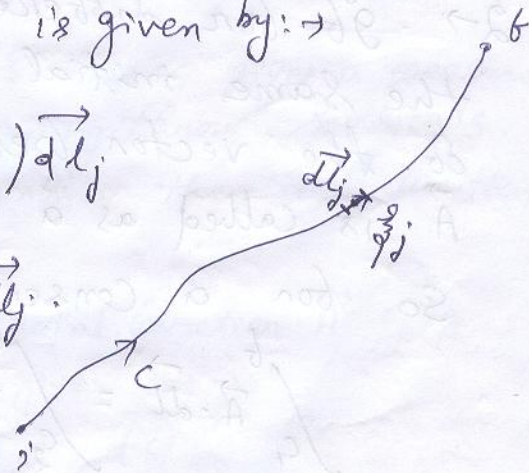 is given by:→
b
) d l⃗_j
dl⃗_j
ξ_j
l⃗_j.
C